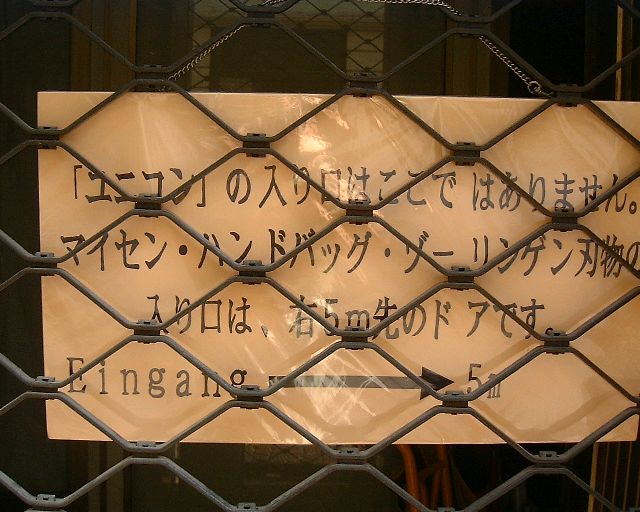 「ユニコン」の入り口はここではありません。
マイセン・ハンドバッグ・ゾーリンゲン刃物の
入り口は、右5m先のドアです。
Eingang → 5m